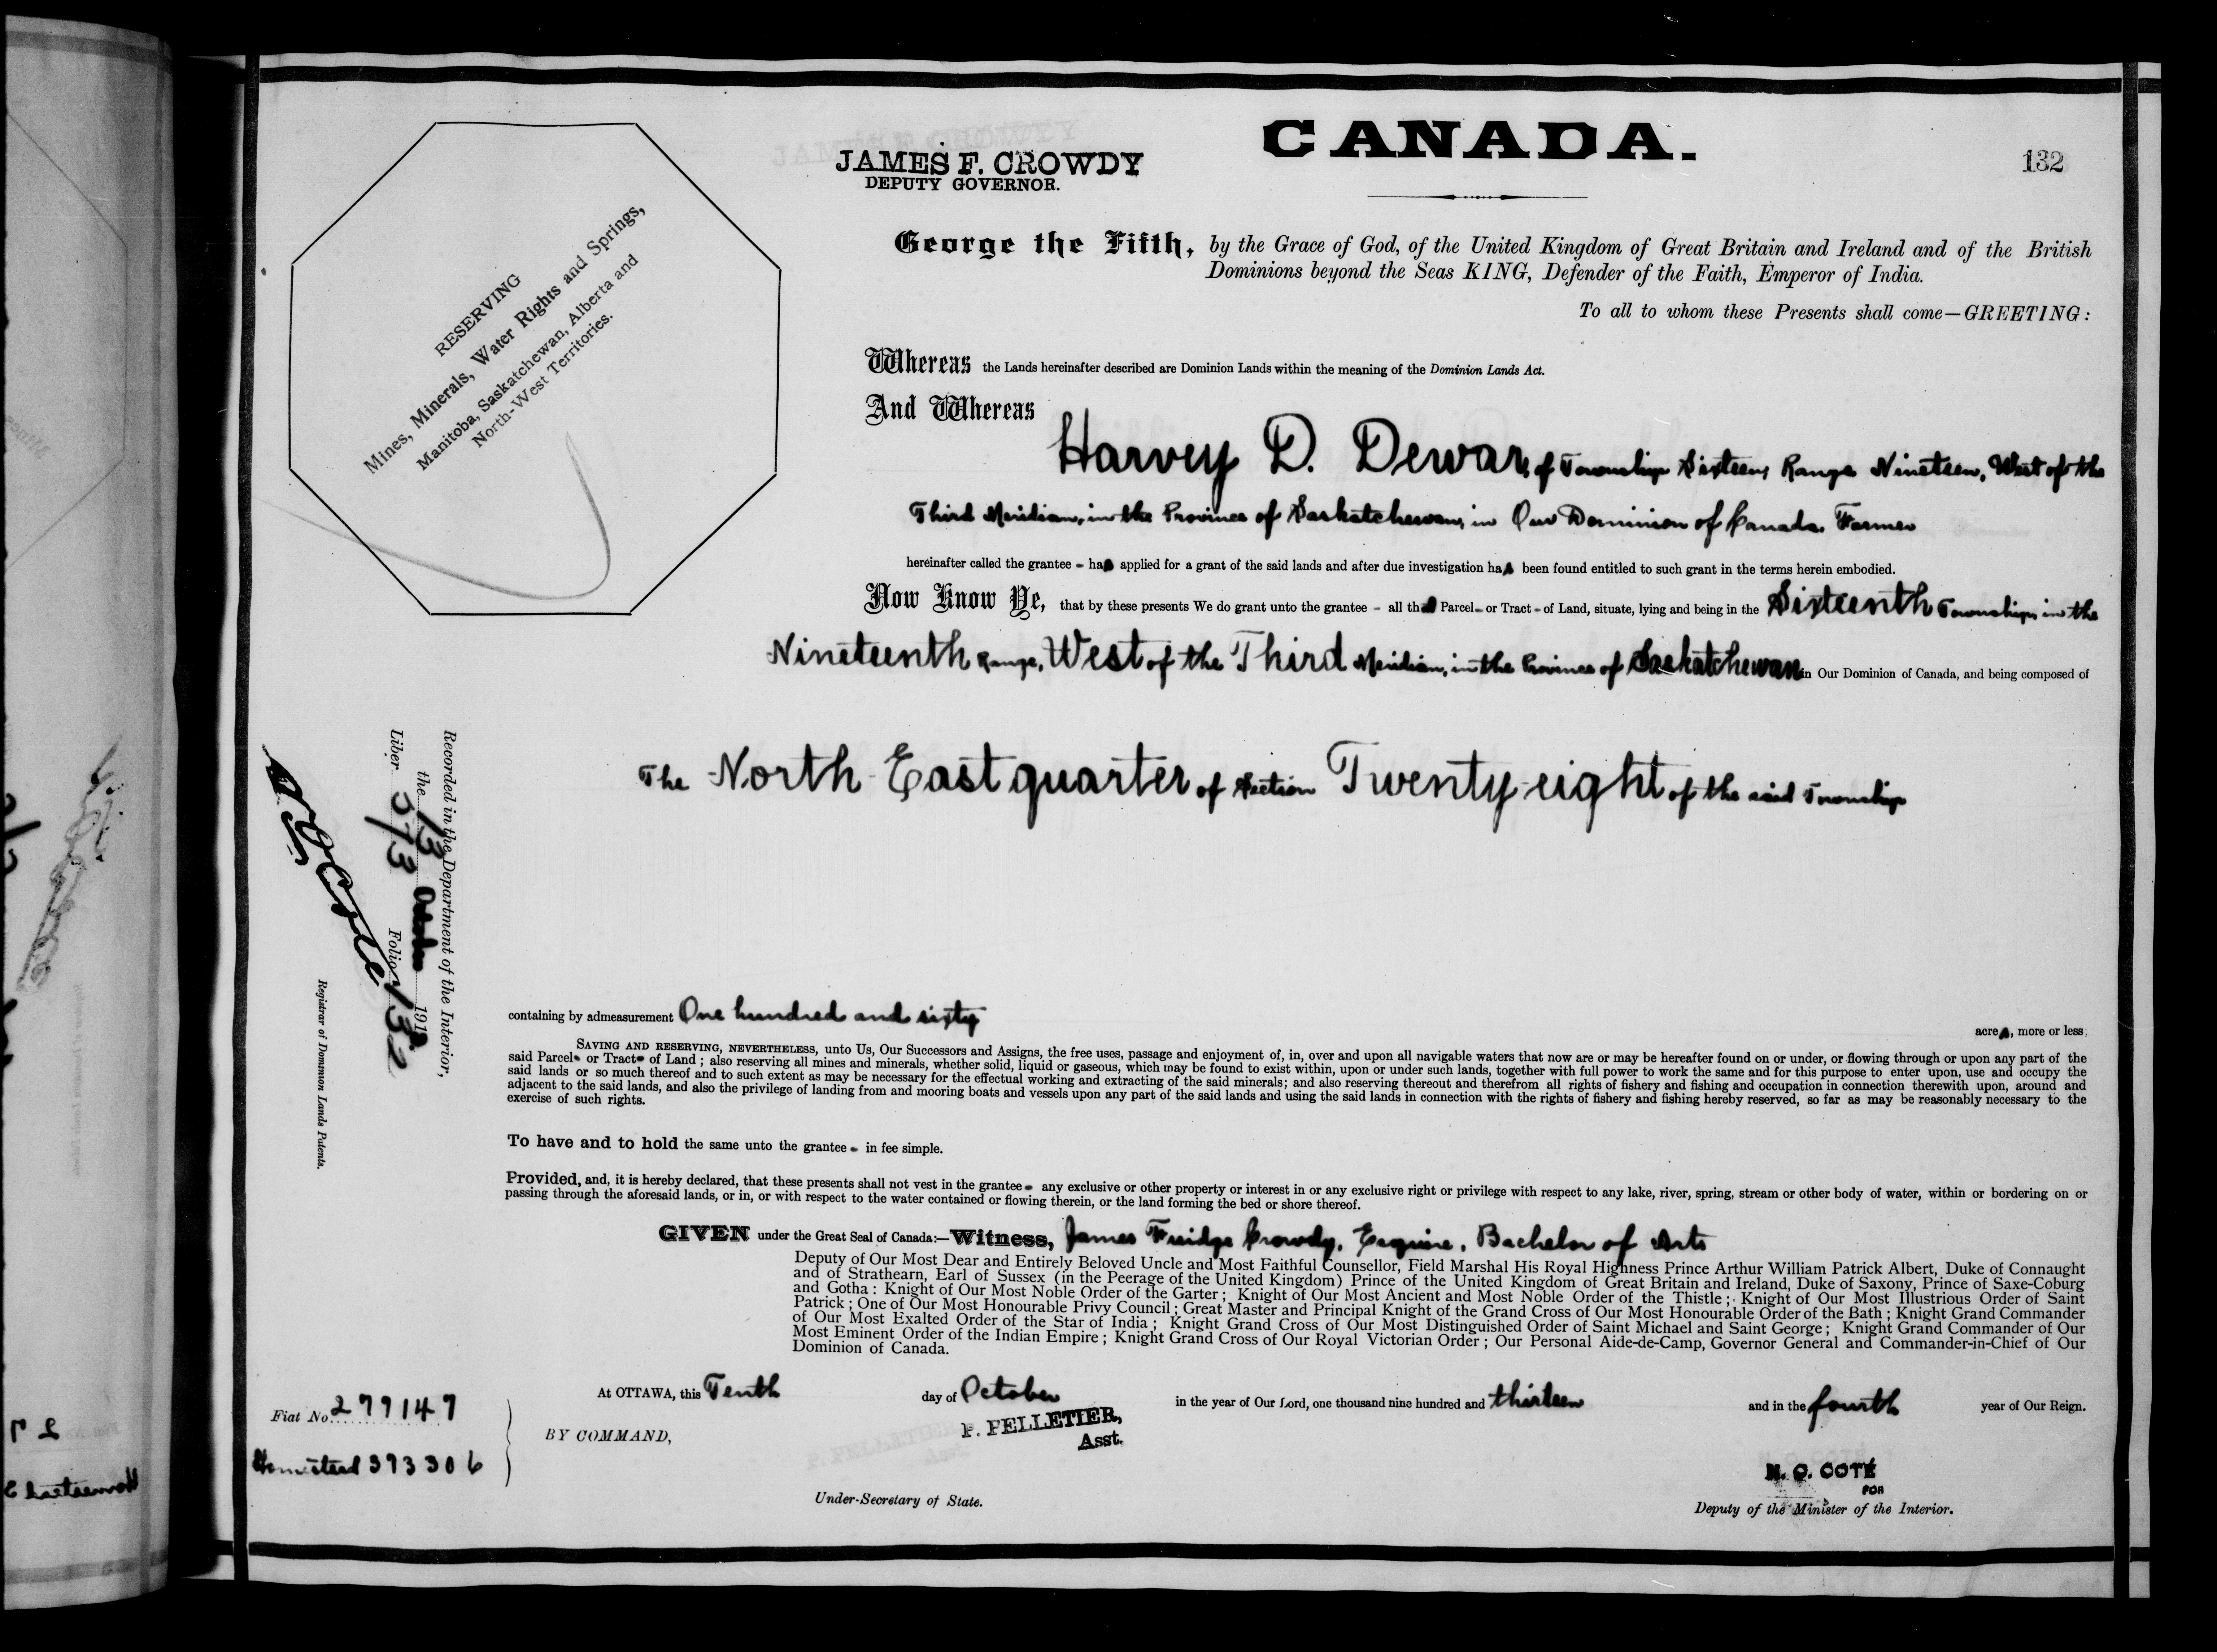 CANADA.
132
JAMES F. CROWDY
DEPUTY GOVERNOR.
RESERVING
Mines, Minerals, Water Rights and Springs,
Manitoba, Saskatchewan, Alberta and
North-West Territories.
George the Fifth, by the Grace of God, of the United Kingdom of Great Britain and Ireland and of the British
Dominions beyond the Seas KING, Defender of the Faith, Emperor of India.
To all to whom these Presents shall come—GREETING:
Whereas the Lands hereinafter described are Dominion Lands within the meaning of the Dominion Lands Act.
And Whereas
Harvey D. Dewar, of Township Sixteen, Range Nineteen, West of the
Third Meridian, in the Province of Saskatchewan, in Our Dominion of Canada. Farmer
hereinafter called the grantee - has applied for a grant of the said lands and after due investigation has been found entitled to such grant in the terms herein embodied.
Now Know Ye, that by these presents We do grant unto the grantee - all that Parcel - or Tract - of Land, situate, lying and being in the Sixteenth Township, in the
Nineteenth Range, West of the Third Meridian, in the Province of Saskatchewan in Our Dominion of Canada, and being composed of
The North East quarter of Section Twenty-eight of the said Township
Recorded in the Department of the Interior,
the 13 October 1913
Liber 573 Folio 132
N O Coté
Registrar of Dominion Lands Patents.
containing by admeasurement One hundred and sixty
acres, more or less;
SAVING AND RESERVING, NEVERTHELESS, unto Us, Our Successors and Assigns, the free uses, passage and enjoyment of, in, over and upon all navigable waters that now are or may be hereafter found on or under, or flowing through or upon any part of the
said Parcel - or Tract - of Land; also reserving all mines and minerals, whether solid, liquid or gaseous, which may be found to exist within, upon or under such lands, together with full power to work the same and for this purpose to enter upon, use and occupy the
said lands or so much thereof and to such extent as may be necessary for the effectual working and extracting of the said minerals; and also reserving thereout and therefrom all rights of fishery and fishing and occupation in connection therewith upon, around and
adjacent to the said lands, and also the privilege of landing from and mooring boats and vessels upon any part of the said lands and using the said lands in connection with the rights of fishery and fishing hereby reserved, so far as may be reasonably necessary to the
exercise of such rights.
To have and to hold the same unto the grantee - in fee simple.
Provided, and, it is hereby declared, that these presents shall not vest in the grantee - any exclusive or other property or interest in or any exclusive right or privilege with respect to any lake, river, spring, stream or other body of water, within or bordering on or
passing through the aforesaid lands, or in, or with respect to the water contained or flowing therein, or the land forming the bed or shore thereof.
GIVEN under the Great Seal of Canada:—Witness, James Fuidge Crowdy, Esquire, Bachelor of Arts
Deputy of Our Most Dear and Entirely Beloved Uncle and Most Faithful Counsellor, Field Marshal His Royal Highness Prince Arthur William Patrick Albert, Duke of Connaught
and of Strathearn, Earl of Sussex (in the Peerage of the United Kingdom) Prince of the United Kingdom of Great Britain and Ireland, Duke of Saxony, Prince of Saxe-Coburg
and Gotha: Knight of Our Most Noble Order of the Garter; Knight of Our Most Ancient and Most Noble Order of the Thistle; Knight of Our Most Illustrious Order of Saint
Patrick; One of Our Most Honourable Privy Council; Great Master and Principal Knight of the Grand Cross of Our Most Honourable Order of the Bath; Knight Grand Commander
of Our Most Exalted Order of the Star of India; Knight Grand Cross of Our Most Distinguished Order of Saint Michael and Saint George; Knight Grand Commander of Our
Most Eminent Order of the Indian Empire; Knight Grand Cross of Our Royal Victorian Order; Our Personal Aide-de-Camp, Governor General and Commander-in-Chief of Our
Dominion of Canada.
At OTTAWA, this Tenth day of October in the year of Our Lord, one thousand nine hundred and thirteen and in the fourth year of Our Reign.
Fiat No. 279147
Homestead 393306
BY COMMAND,
P. PELLETIER,
Asst.
Under-Secretary of State.
N. O. COTÉ
FOR
Deputy of the Minister of the Interior.